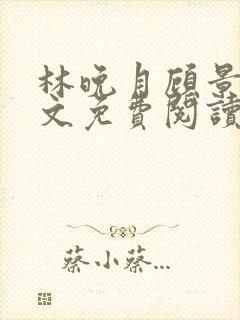 林晚自顾景
文免费阅读
蔡小蔡...